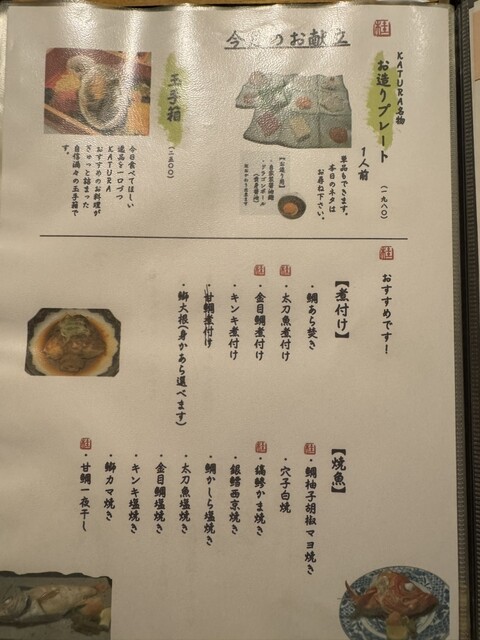 今月のお献立
桂
KATURA名物
お造りプレート
1人前
(一九八〇)
単品もできます。
本日のネタは
お尋ね下さい。
玉手箱
(二五〇〇)
今日食べてほしい
逸品を一口づつ
KATURA
おすすめのお料理が
ぎゅっと詰まった
自信満々の玉手箱で
す。
桂
おすすめです!
【煮付け】
・鯛あら焚き
桂・太刀魚煮付け
桂・金目鯛煮付け
・キンキ煮付け
・甘鯛煮付け
・鰤大根(身かあら選べます)
【焼魚】
桂・鯛柚子胡椒マヨ焼き
・穴子白焼
桂・縞鯵かま焼き
・銀鱈西京焼き
・鯛かしら塩焼き
・太刀魚塩焼き
・金目鯛塩焼き
・キンキ塩焼き
・鰤カマ焼き
桂・甘鯛一夜干し